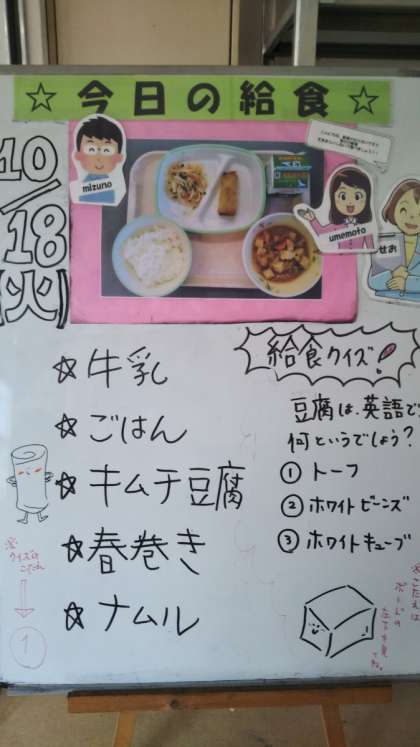 ☆今日の給食☆
10/18(火)
mizuno
umemoto
せお
☆牛乳
☆ごはん
☆キムチ豆腐
☆春巻き
☆ナムル
給食クイズ!
豆腐は、英語で
何というでしょう?
① トーフ
② ホワイトビーンズ
③ ホワイトキューブ
※クイズの
こたえ
①
※こたえは
ボードの
左下を見
てね。